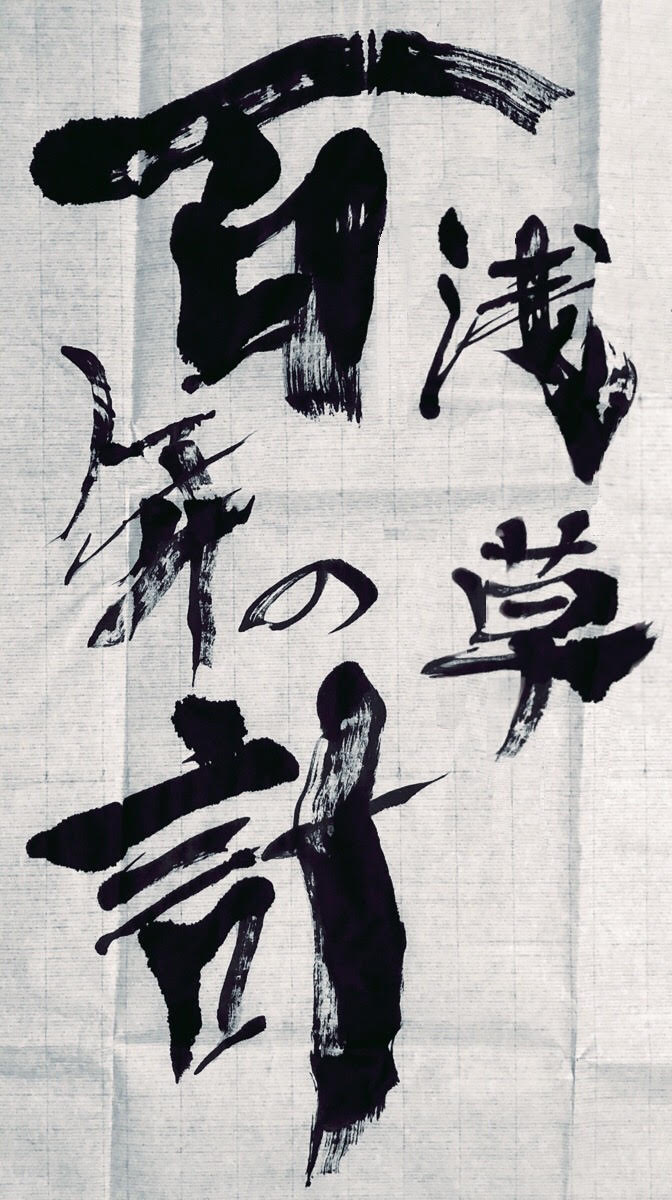 浅草
百年の計